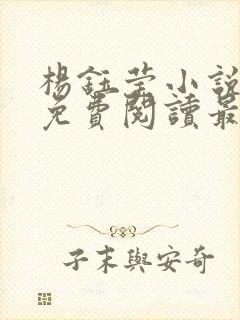 楊鈺莹小說
免費閱讀最
子末與安奇